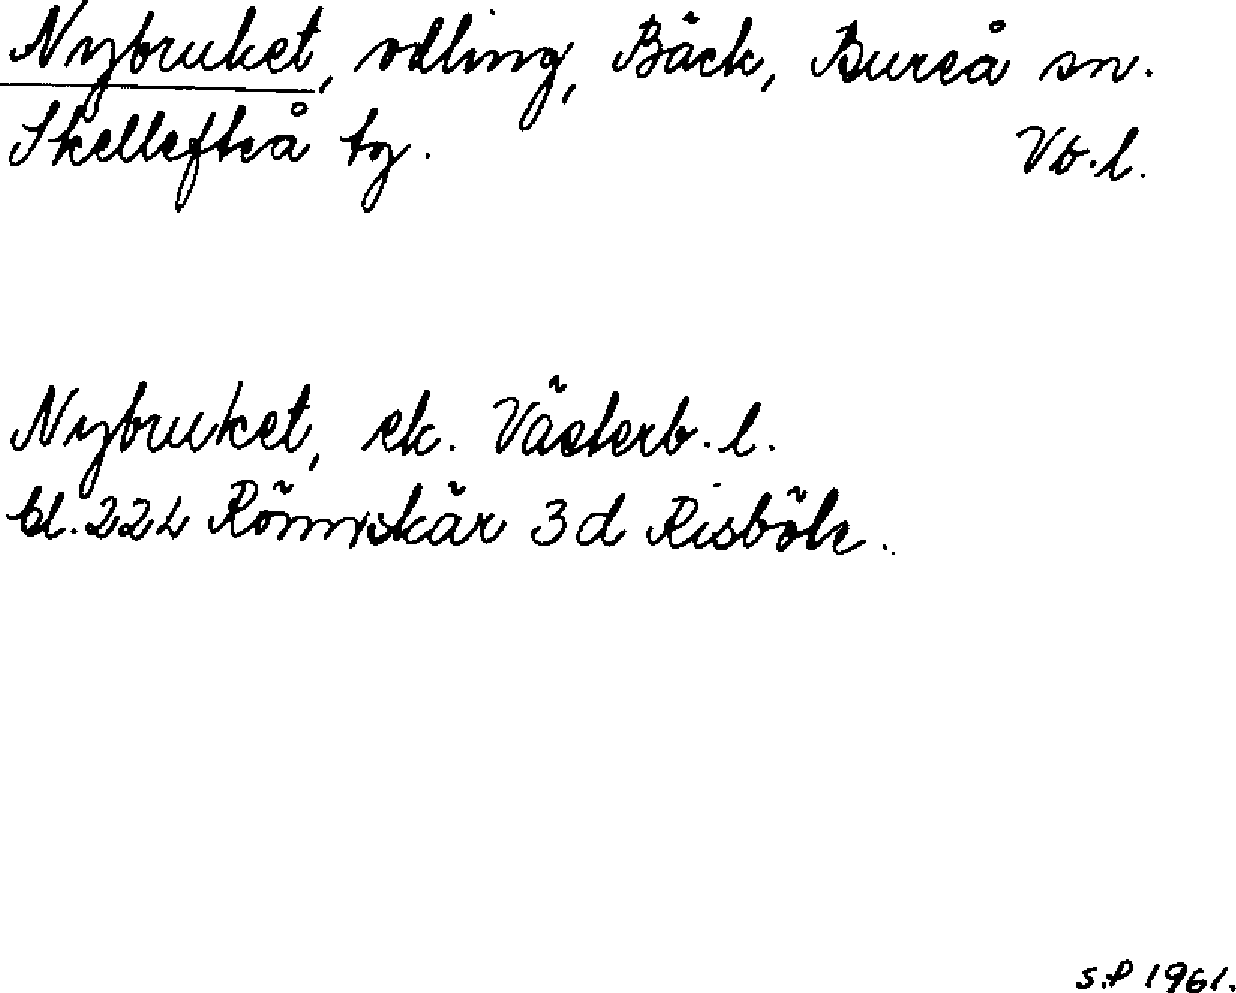 Nybruket, odling, Bäck, Bureå sn.
Skellefteå tg. Vb.l.
Nybruket, ek. Västerb. l.
bl. 22L Rönnskär 3d Risböle.
S.P 1961.